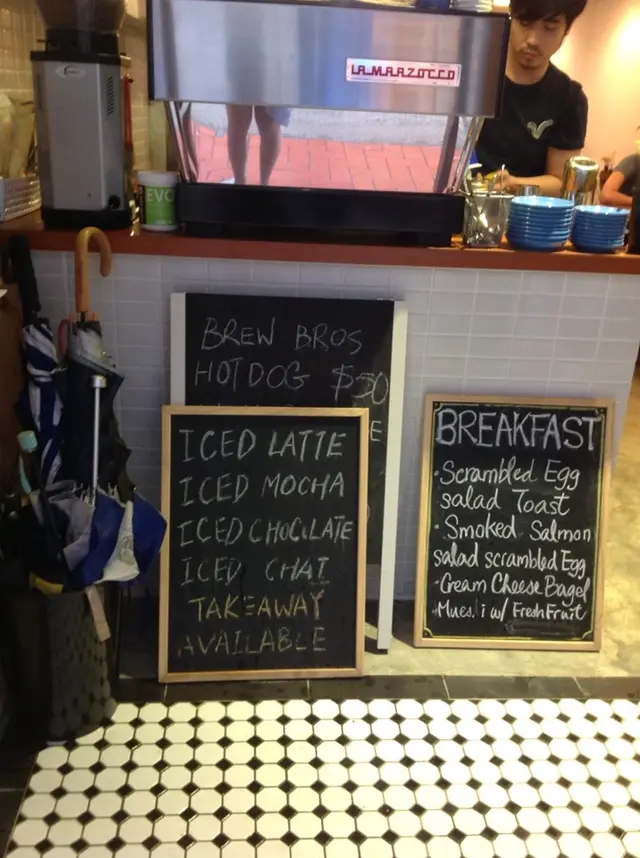 LA MARZOCCO
EVC
BREW BROS
HOTDOG $50
E
ICED LATTE
ICED MOCHA
ICED CHOCLATE
ICED CHAI
TAKEAWAY
AVAILABLE
BREAKFAST
·Scrambled Egg
salad Toast
·Smoked Salmon
salad scrambled Egg
·Cream Cheese Bagel
·Mues.i w/ Fresh Fruit